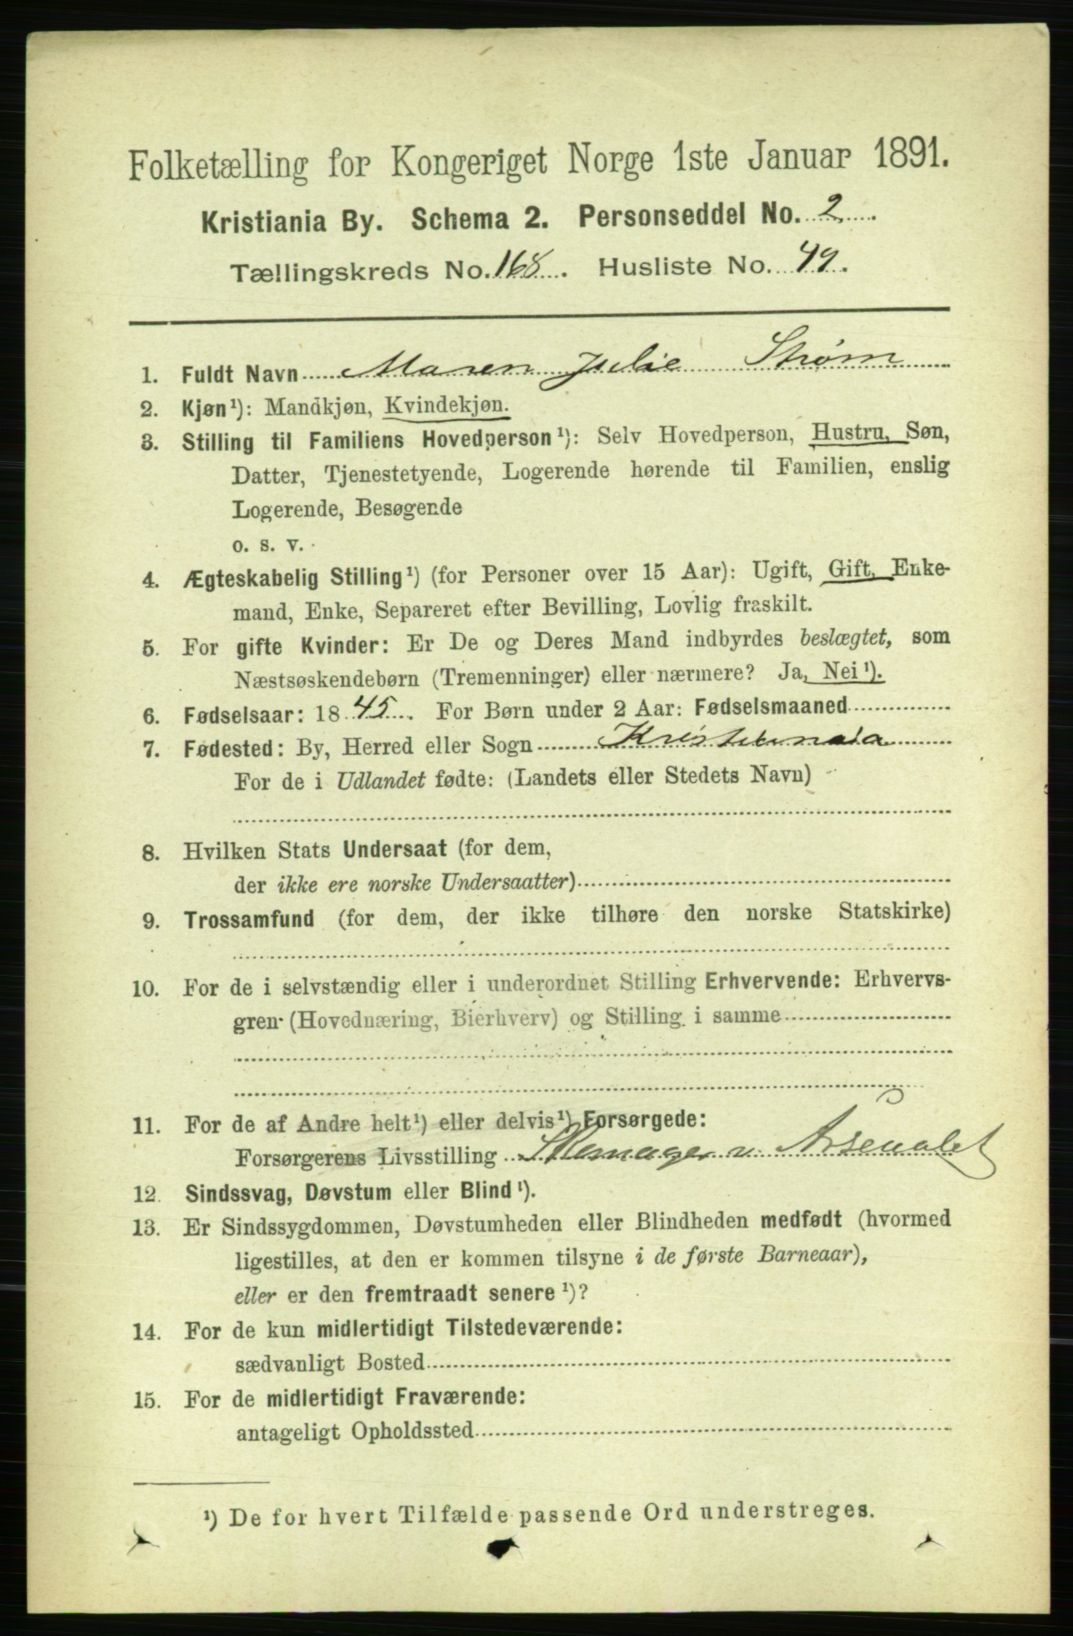 Folketælling for Kongeriget Norge 1ste Januar 1891.
Kristiania By. Schema 2. Personseddel No. 2.
Tællingskreds No. 168. Husliste No. 49.
1. Fuldt Navn Maren Julie Strøm
2. Kjøn¹): Mandkjøn, Kvindekjøn.
3. Stilling til Familiens Hovedperson¹): Selv Hovedperson, Hustru, Søn,
Datter, Tjenestetyende, Logerende hørende til Familien, enslig
Logerende, Besøgende
o. s. v.
4. Ægteskabelig Stilling¹) (for Personer over 15 Aar): Ugift, Gift, Enke-
mand, Enke, Separeret efter Bevilling, Lovlig fraskilt.
5. For gifte Kvinder: Er De og Deres Mand indbyrdes beslægtet, som
Næstsøskendebørn (Tremenninger) eller nærmere? Ja, Nei¹).
6. Fødselsaar: 1845. For Børn under 2 Aar: Fødselsmaaned
7. Fødested: By, Herred eller Sogn Kristiania
For de i Udlandet fødte: (Landets eller Stedets Navn)
8. Hvilken Stats Undersaat (for dem,
der ikke ere norske Undersaatter)
9. Trossamfund (for dem, der ikke tilhøre den norske Statskirke)
10. For de i selvstændig eller i underordnet Stilling Erhvervende: Erhvervs-
gren (Hovednæring, Bierhverv) og Stilling i samme
11. For de af Andre helt¹) eller delvis¹) Forsørgede:
Forsørgerens Livsstilling v. Arsenalet
12. Sindssvag, Døvstum eller Blind¹).
13. Er Sindssygdommen, Døvstumheden eller Blindheden medfødt (hvormed
ligestilles, at den er kommen tilsyne i de første Barneaar),
eller er den fremtraadt senere¹)?
14. For de kun midlertidigt Tilstedeværende:
sædvanligt Bosted
15. For de midlertidigt Fraværende:
antageligt Opholdssted
¹) De for hvert Tilfælde passende Ord understreges.